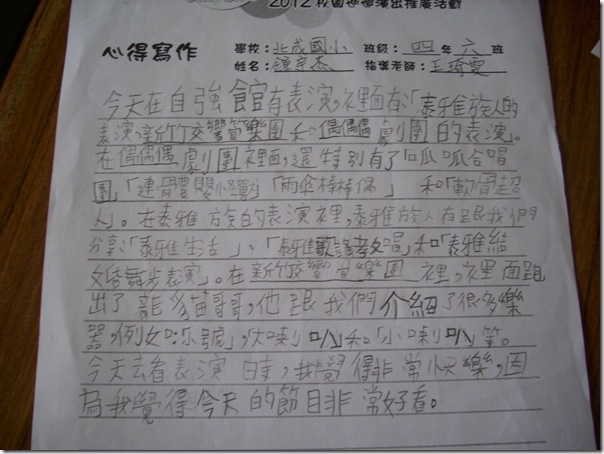 2012 校園巡迴演出推廣活動
心得寫作 學校:北成國小 班級:四年六班
姓名:鐘宇杰 指導老師:王琦雯
今天在自強館有表演,裡面有:「泰雅族人的
表演、新竹交響管樂團和偶偶偶劇團的表演。
在偶偶偶劇團裡面,還特別有了「呱呱合唱
團」「連體嬰小運動」「雨傘棒棒偶」和「軟骨超
人」。在泰雅族的表演裡,泰雅族人有跟我們
分享:「泰雅生活」、「泰雅歌謠教唱」和「泰雅結
婚舞步表演」。在新竹交響管樂團裡,裡面跑
出了龍貓哥哥,他跟我們介紹了很多樂
器,例如:「小號」,「大喇叭」和「小喇叭」等。
今天去看表演時,我覺得非常快樂,因
為我覺得今天的節目非常好看。